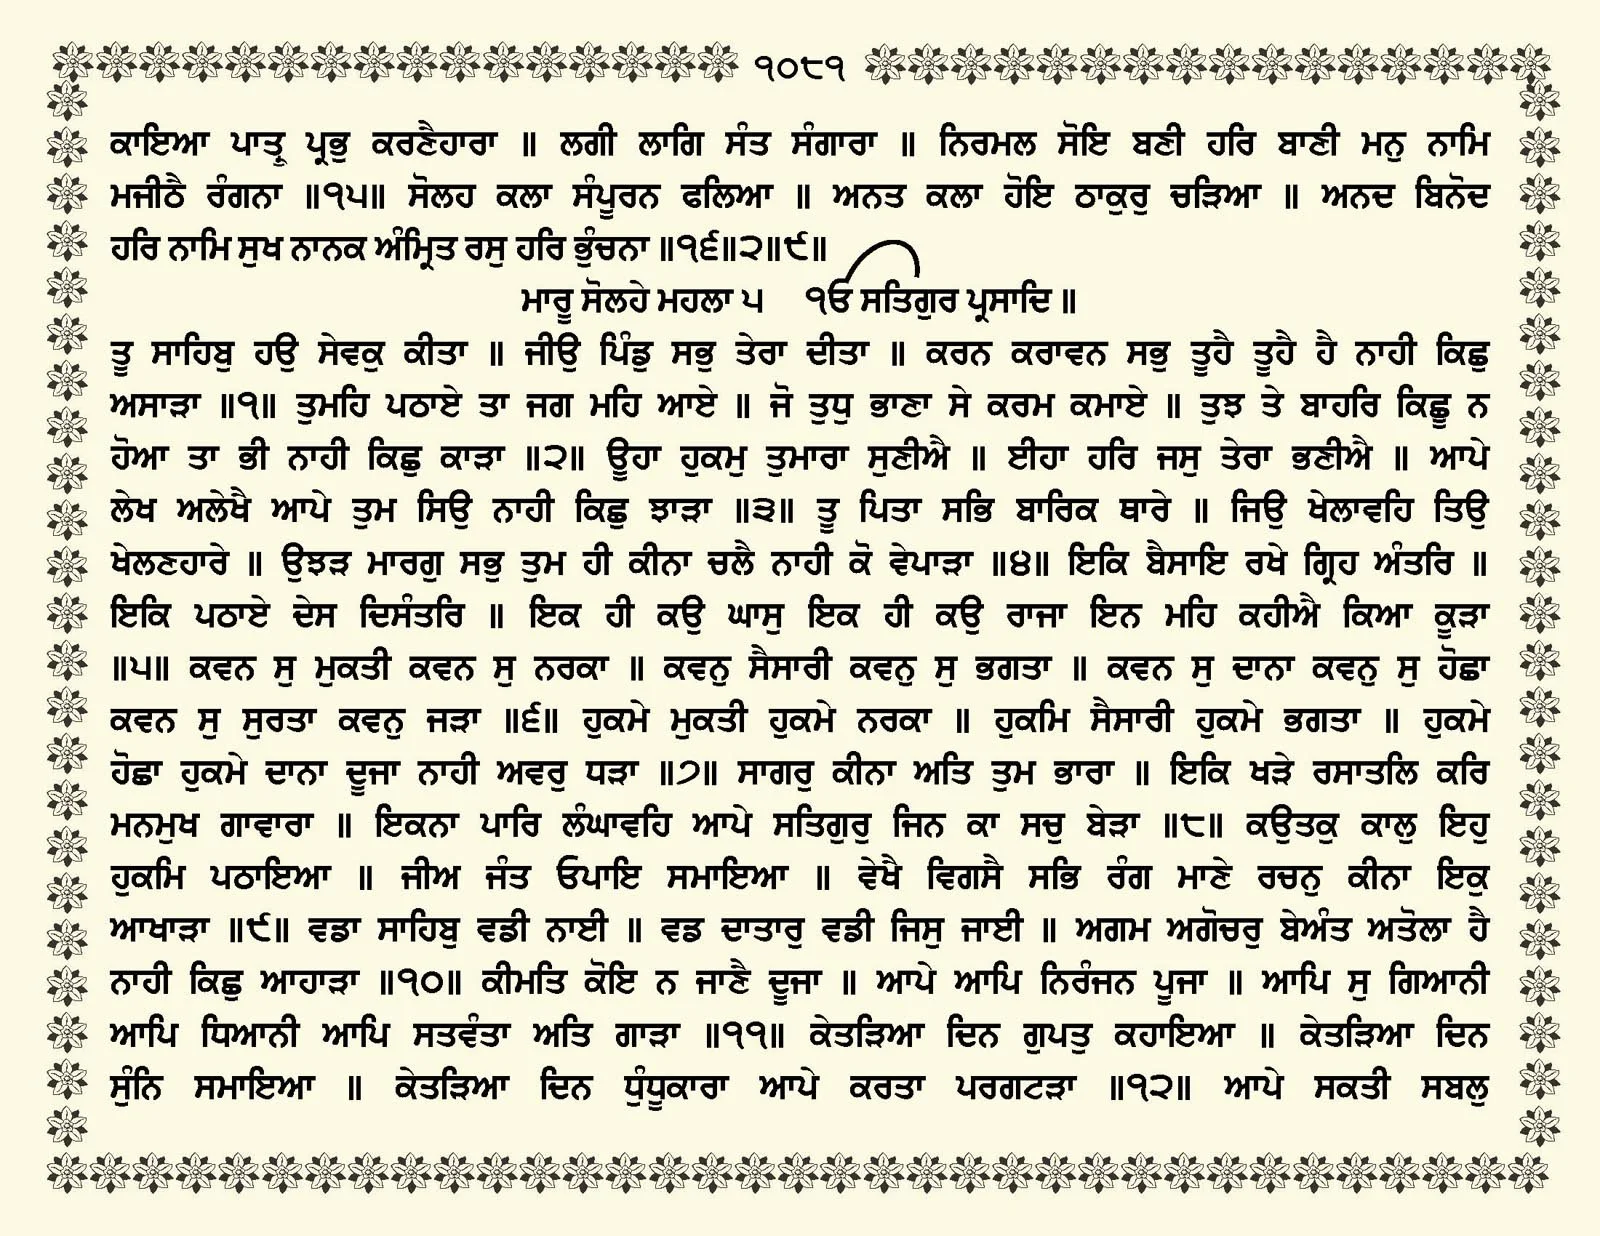 ੧੦੮੧
ਕਾਇਆ ਪਾਤ੍ਰੁ ਪ੍ਰਭੁ ਕਰਣੈਹਾਰਾ ॥ ਲਗੀ ਲਾਗਿ ਸੰਤ ਸੰਗਾਰਾ ॥ ਨਿਰਮਲ ਸੋਇ ਬਣੀ ਹਰਿ ਬਾਣੀ ਮਨੁ ਨਾਮਿ
ਮਜੀਠੈ ਰੰਗਨਾ ॥੧੫॥ ਸੋਲਹ ਕਲਾ ਸੰਪੂਰਨ ਫਲਿਆ ॥ ਅਨਤ ਕਲਾ ਹੋਇ ਠਾਕੁਰੁ ਚੜਿਆ ॥ ਅਨਦ ਬਿਨੋਦ
ਹਰਿ ਨਾਮਿ ਸੁਖ ਨਾਨਕ ਅੰਮ੍ਰਿਤ ਰਸੁ ਹਰਿ ਭੁੰਚਨਾ ॥੧੬॥੨॥੯॥
ਮਾਰੂ ਸੋਲਹੇ ਮਹਲਾ ੫ ੴ ਸਤਿਗੁਰ ਪ੍ਰਸਾਦਿ ॥
ਤੂ ਸਾਹਿਬੁ ਹਉ ਸੇਵਕੁ ਕੀਤਾ ॥ ਜੀਉ ਪਿੰਡੁ ਸਭੁ ਤੇਰਾ ਦੀਤਾ ॥ ਕਰਨ ਕਰਾਵਨ ਸਭੁ ਤੂਹੈ ਤੂਹੈ ਹੈ ਨਾਹੀ ਕਿਛੁ
ਅਸਾੜਾ ॥੧॥ ਤੁਮਹਿ ਪਠਾਏ ਤਾ ਜਗ ਮਹਿ ਆਏ ॥ ਜੋ ਤੁਧੁ ਭਾਣਾ ਸੇ ਕਰਮ ਕਮਾਏ ॥ ਤੁਝ ਤੇ ਬਾਹਰਿ ਕਿਛੂ ਨ
ਹੋਆ ਤਾ ਭੀ ਨਾਹੀ ਕਿਛੁ ਕਾੜਾ ॥੨॥ ਊਹਾ ਹੁਕਮੁ ਤੁਮਾਰਾ ਸੁਣੀਐ ॥ ਈਹਾ ਹਰਿ ਜਸੁ ਤੇਰਾ ਭਣੀਐ ॥ ਆਪੇ
ਲੇਖ ਅਲੇਖੈ ਆਪੇ ਤੁਮ ਸਿਉ ਨਾਹੀ ਕਿਛੁ ਝਾੜਾ ॥੩॥ ਤੂ ਪਿਤਾ ਸਭਿ ਬਾਰਿਕ ਥਾਰੇ ॥ ਜਿਉ ਖੇਲਾਵਹਿ ਤਿਉ
ਖੇਲਣਹਾਰੇ ॥ ਉਝੜ ਮਾਰਗੁ ਸਭੁ ਤੁਮ ਹੀ ਕੀਨਾ ਚਲੈ ਨਾਹੀ ਕੋ ਵੇਪਾੜਾ ॥੪॥ ਇਕਿ ਬੈਸਾਇ ਰਖੇ ਗ੍ਰਿਹ ਅੰਤਰਿ ॥
ਇਕਿ ਪਠਾਏ ਦੇਸ ਦਿਸੰਤਰਿ ॥ ਇਕ ਹੀ ਕਉ ਘਾਸੁ ਇਕ ਹੀ ਕਉ ਰਾਜਾ ਇਨ ਮਹਿ ਕਹੀਐ ਕਿਆ ਕੂੜਾ
॥੫॥ ਕਵਨ ਸੁ ਮੁਕਤੀ ਕਵਨ ਸੁ ਨਰਕਾ ॥ ਕਵਨੁ ਸੈਸਾਰੀ ਕਵਨੁ ਸੁ ਭਗਤਾ ॥ ਕਵਨ ਸੁ ਦਾਨਾ ਕਵਨੁ ਸੁ ਹੋਛਾ
ਕਵਨ ਸੁ ਸੁਰਤਾ ਕਵਨੁ ਜੜਾ ॥੬॥ ਹੁਕਮੇ ਮੁਕਤੀ ਹੁਕਮੇ ਨਰਕਾ ॥ ਹੁਕਮਿ ਸੈਸਾਰੀ ਹੁਕਮੇ ਭਗਤਾ ॥ ਹੁਕਮੇ
ਹੋਛਾ ਹੁਕਮੇ ਦਾਨਾ ਦੂਜਾ ਨਾਹੀ ਅਵਰੁ ਧੜਾ ॥੭॥ ਸਾਗਰੁ ਕੀਨਾ ਅਤਿ ਤੁਮ ਭਾਰਾ ॥ ਇਕਿ ਖੜੇ ਰਸਾਤਲਿ ਕਰਿ
ਮਨਮੁਖ ਗਾਵਾਰਾ ॥ ਇਕਨਾ ਪਾਰਿ ਲੰਘਾਵਹਿ ਆਪੇ ਸਤਿਗੁਰੁ ਜਿਨ ਕਾ ਸਚੁ ਬੇੜਾ ॥੮॥ ਕਉਤਕੁ ਕਾਲੁ ਇਹੁ
ਹੁਕਮਿ ਪਠਾਇਆ ॥ ਜੀਅ ਜੰਤ ਓਪਾਇ ਸਮਾਇਆ ॥ ਵੇਖੈ ਵਿਗਸੈ ਸਭਿ ਰੰਗ ਮਾਣੇ ਰਚਨੁ ਕੀਨਾ ਇਕੁ
ਆਖਾੜਾ ॥੯॥ ਵਡਾ ਸਾਹਿਬੁ ਵਡੀ ਨਾਈ ॥ ਵਡ ਦਾਤਾਰੁ ਵਡੀ ਜਿਸੁ ਜਾਈ ॥ ਅਗਮ ਅਗੋਚਰੁ ਬੇਅੰਤ ਅਤੋਲਾ ਹੈ
ਨਾਹੀ ਕਿਛੁ ਆਹਾੜਾ ॥੧੦॥ ਕੀਮਤਿ ਕੋਇ ਨ ਜਾਣੈ ਦੂਜਾ ॥ ਆਪੇ ਆਪਿ ਨਿਰੰਜਨ ਪੂਜਾ ॥ ਆਪਿ ਸੁ ਗਿਆਨੀ
ਆਪਿ ਧਿਆਨੀ ਆਪਿ ਸਤਵੰਤਾ ਅਤਿ ਗਾੜਾ ॥੧੧॥ ਕੇਤੜਿਆ ਦਿਨ ਗੁਪਤੁ ਕਹਾਇਆ ॥ ਕੇਤੜਿਆ ਦਿਨ
ਸੁੰਨਿ ਸਮਾਇਆ ॥ ਕੇਤੜਿਆ ਦਿਨ ਧੁੰਧੂਕਾਰਾ ਆਪੇ ਕਰਤਾ ਪਰਗਟੜਾ ॥੧੨॥ ਆਪੇ ਸਕਤੀ ਸਬਲੁ